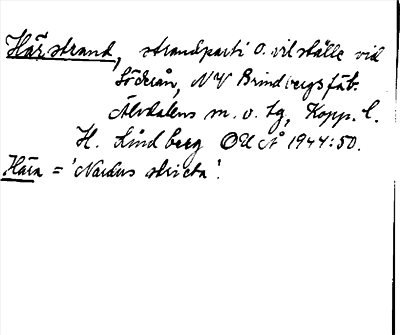 Härstrand, strandparti o. vilställe vid
Söderån, NV Brindbergs fäb.
Älvdalens m. o. tg, Kopp. l.
H. Lindberg OUÅ 1944:50.
Hära = 'Nardus stricta'.